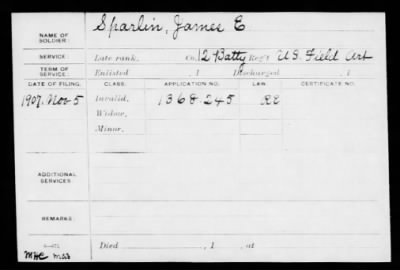 NAME OF SOLDIER: Sparlin, James E
SERVICE: Late rank, Co. 12 Batty Reg't U.S. Field Art
TERM OF SERVICE: Enlisted , 1 Discharged , 1
DATE OF FILING. CLASS. APPLICATION NO. LAW. CERTIFICATE NO.
1907. Nov 5 Invalid, 1368.245
Widow,
Minor,
ADDITIONAL SERVICES:
REMARKS:
Died , 1 , at